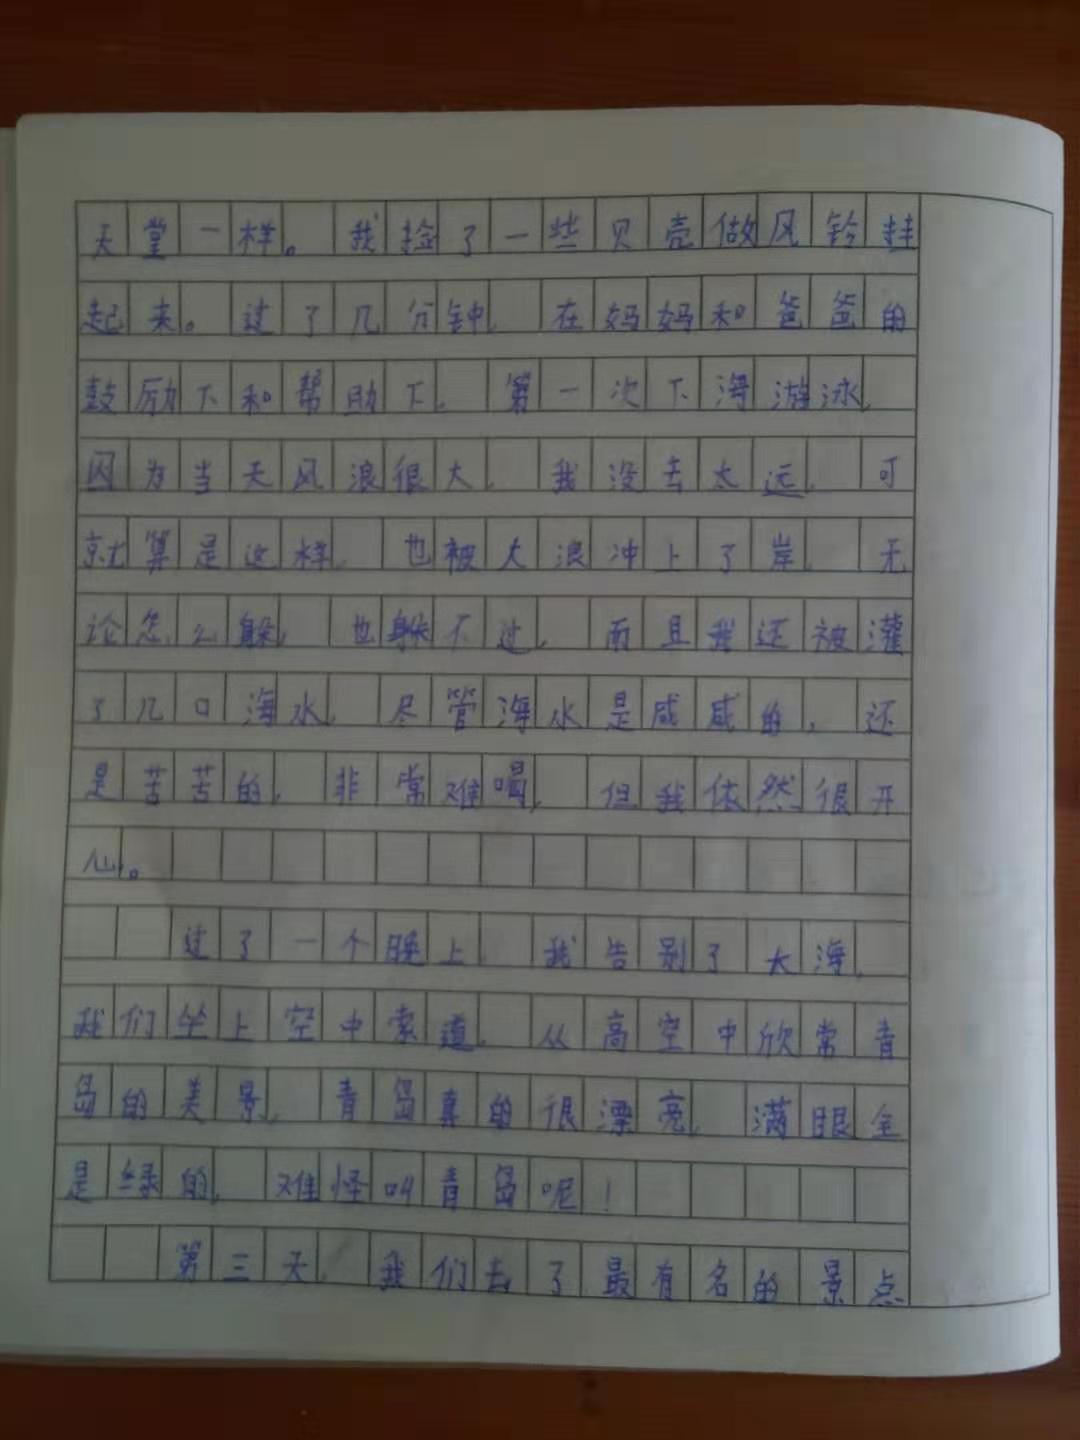 天堂一样。我捡了一些贝壳做风铃挂
起来。过了几分钟，在妈妈和爸爸的
鼓励下和帮助下，第一次下海游泳，
因为当天风浪很大，我没去太远，可
就算是这样，也被大浪冲上了岸，无
论怎么躲，也躲不过，而且我还被灌
了几口海水，尽管海水是咸咸的，还
是苦苦的，非常难喝，但我依然很开
心。
过了一个晚上，我告别了大海，
我们坐上空中索道，从高空中欣常青
岛的美景，青岛真的很漂亮，满眼全
是绿的，难怪叫青岛呢！
第三天，我们去了最有名的景点